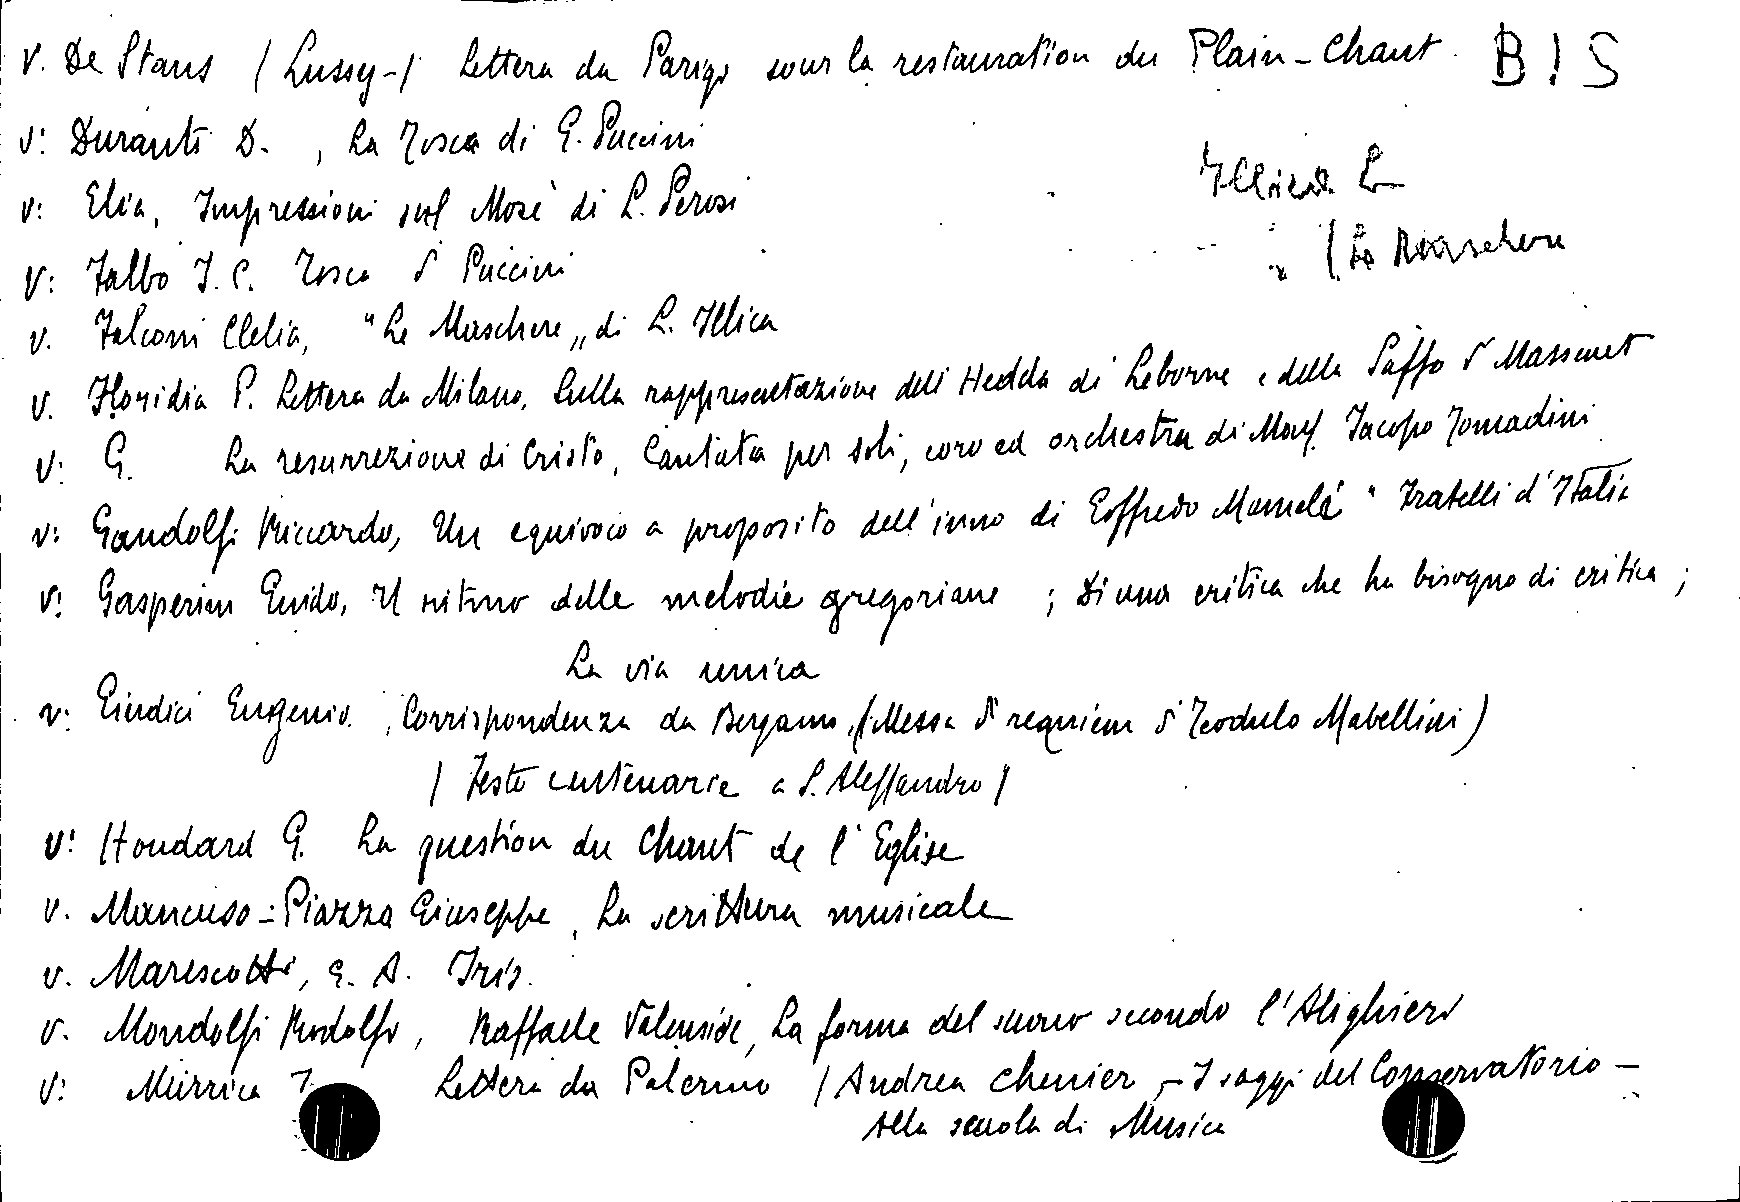 v. De Staus / Lussy-/ Lettera da Parigi sour la restauration du Plain-Chant. BIS
v: Duranti D. , La Tosca di G. Puccini
Illica L
v: Elia, Impressioni sul Mosè di L. Perosi
" / Le Maschere
v: Falbo I. C. Tosca d Puccini
v. Falconi Clelia, "Le Maschere„ di L. Illica
v. Floridia P. Lettera da Milano. Sulla rappresentazione dell'Hedda di Leborne e della Saffo d Massenet
v: G. La resurrezione di Cristo, Cantata per soli, coro ed orchestra di Mons. Jacopo Tomadini
v: Gandolfi Riccardo, Un equivoco a proposito dell'inno di Goffredo Mameli " Fratelli d'Italia
v: Gasperini Guido, Il ritmo delle melodie gregoriane ; Di una critica che ha bisogno di critica ;
La via unica
v: Giudici Eugenio. , Corrispondenza da Bergamo, (Messa d requiem d Teodulo Mabellini)
/ Feste centenarie a S. Alessandro /
v: Houdard G. La question du Chant de l'Eglise
v. Mancuso-Piazza Giuseppe, La scrittura musicale
v. Marescotti, E. A. Iris.
v. Mondolfi Rodolfo, Raffaele Valensise, La forma del suono secondo l'Alighieri
v: Mirrica Lettera da Palermo / Andrea Chenier, - I saggi del Conservatorio -
Alla scuola di Musica